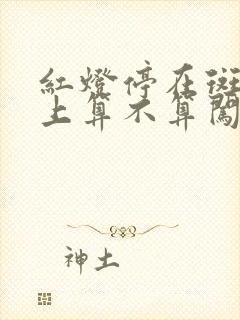 紅燈停在斑
上算不算闖
神土